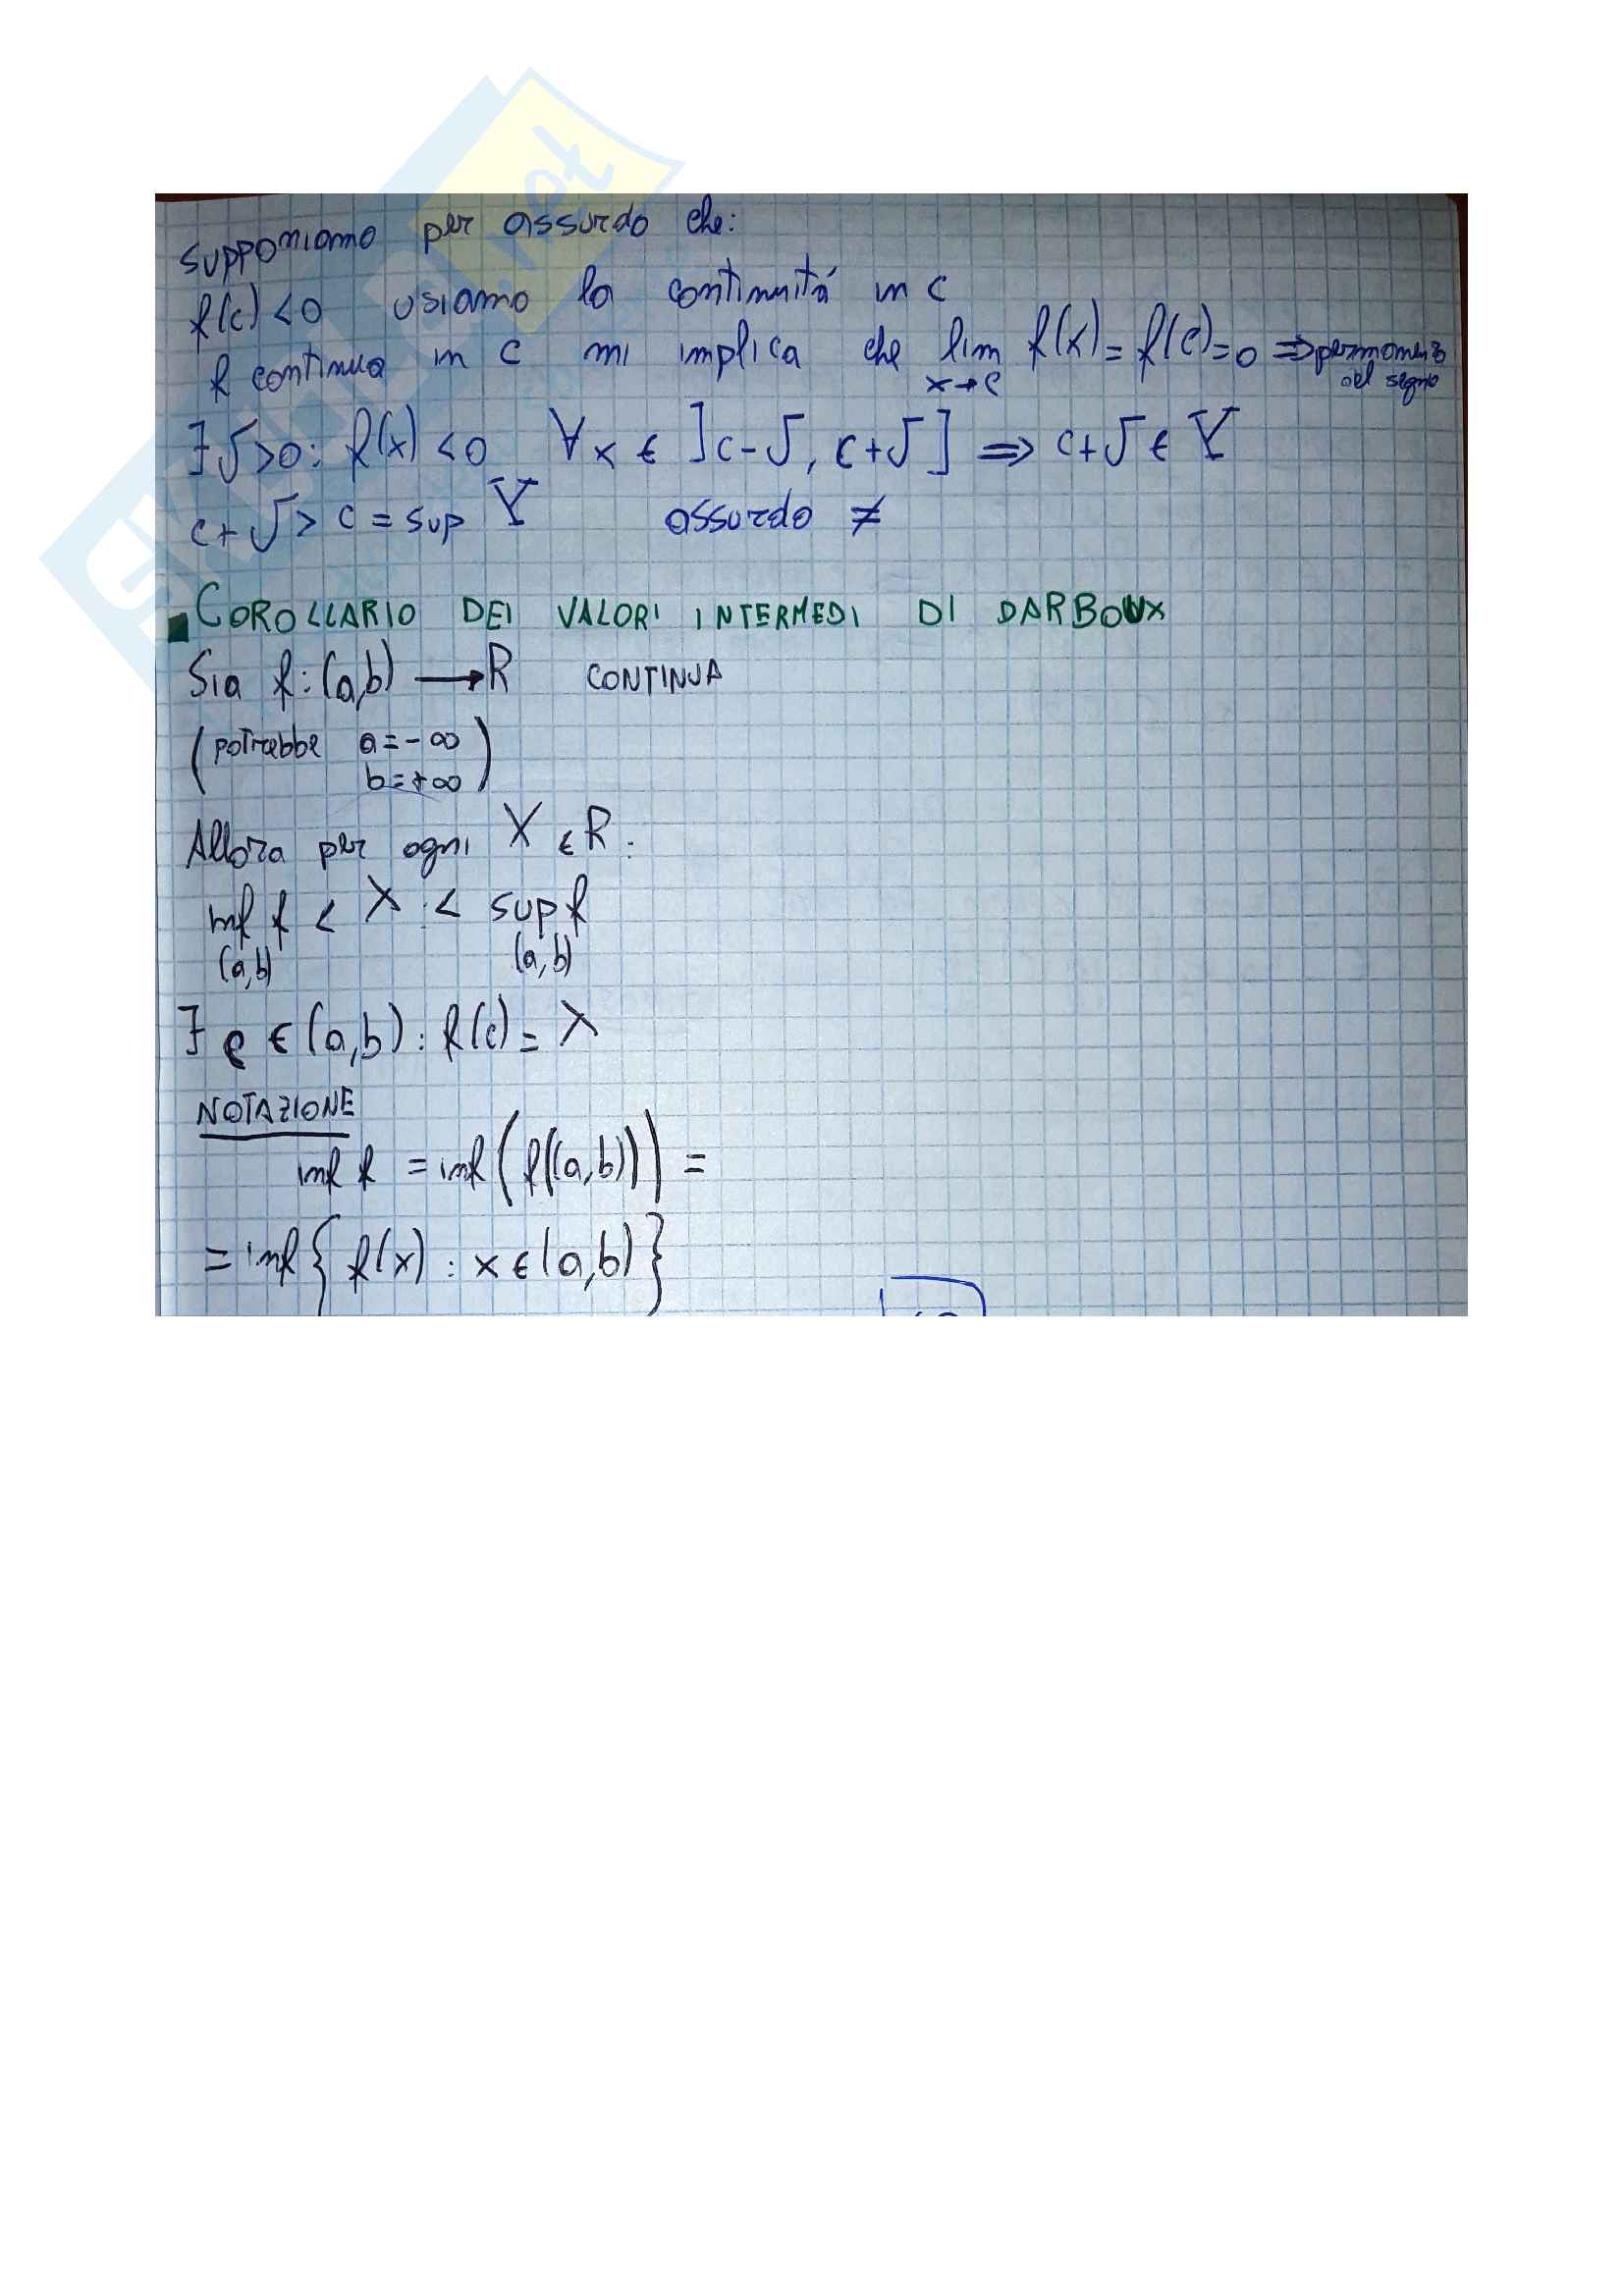 SKUOLA.net
supponiamo per assurdo che:
f(c) <0 usiamo la continuità in c
f continua in c mi implica che lim f(x) = f(c) = 0 ⇒ permanenza
x→c del segno
∃ δ>0: f(x) <0 ∀x ∈ ]c-δ, c+δ] ⇒ c+δ ∈ Y
c+δ > c = sup Y assurdo ≠
COROLLARIO DEI VALORI INTERMEDI DI DARBOUX
Sia f: (a,b) → R CONTINUA
(potrebbe a=-∞
b=+∞)
Allora per ogni λ ∈ R:
inf f < λ < sup f
(a,b) (a,b)
∃ c ∈ (a,b): f(c) = λ
NOTAZIONE
inf f = inf (f((a,b))) =
= inf { f(x) : x ∈ (a,b) }